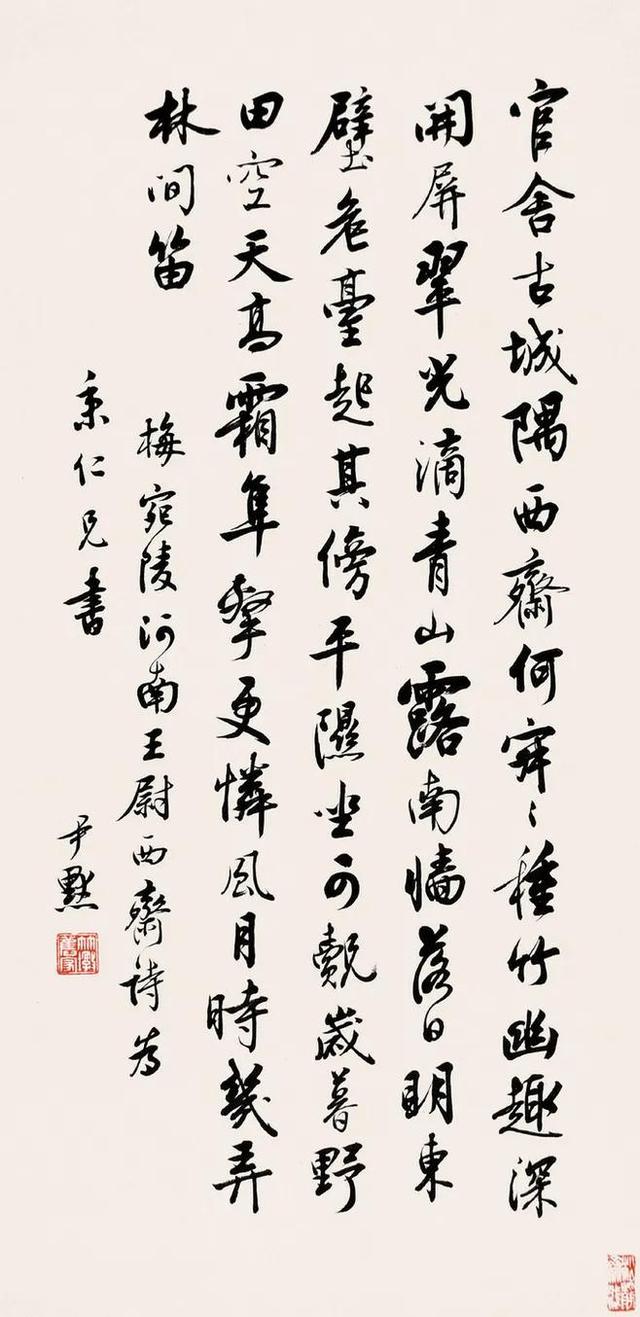 官舍古城隅西齋何寂〻種竹幽趣深
開屏翠光滴青山露南墻落日明東
壁危臺起其傍平隰坐可覿歲暮野
田空天高霜隼擊更憐風月時幾弄
林間笛
梅宛陵河南王尉西齋詩為
秉仁兄書
尹默